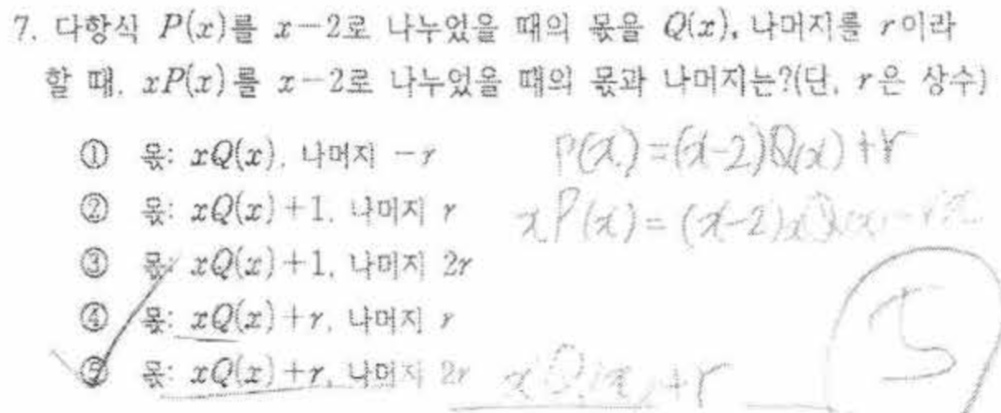 7. 다항식 P(x)를 x-2로 나누었을 때의 몫을 Q(x), 나머지를 r이라
할 때, xP(x)를 x-2로 나누었을 때의 몫과 나머지는?(단, r은 상수)
① 몫: xQ(x), 나머지 -r
P(x)=(x-2)Q(x)+r
② 몫: xQ(x)+1, 나머지 r
xP(x)=(x-2)xQ(x)+rx
③ 몫: xQ(x)+1, 나머지 2r
④ 몫: xQ(x)+r, 나머지 r
⑤ 몫: xQ(x)+r, 나머지 2r
xQ(x)+r
5